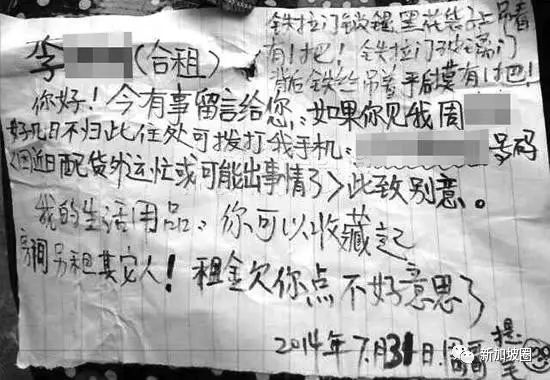 铁拉门锁匙黑花袋子吊着
有1把！铁拉门
背后铁丝吊着手后摸有1把！
李 (合租)
你好！今有事留言给您：如果你见我周
好几日不归此住处可拨打我手机： 号码
<因近日配货外运忙或可能出事情了>此致别意。
我的生活用品：你可以收藏
房间另租其它人！租金欠你点不好意思了
2014年7月31日 周
新加坡圈